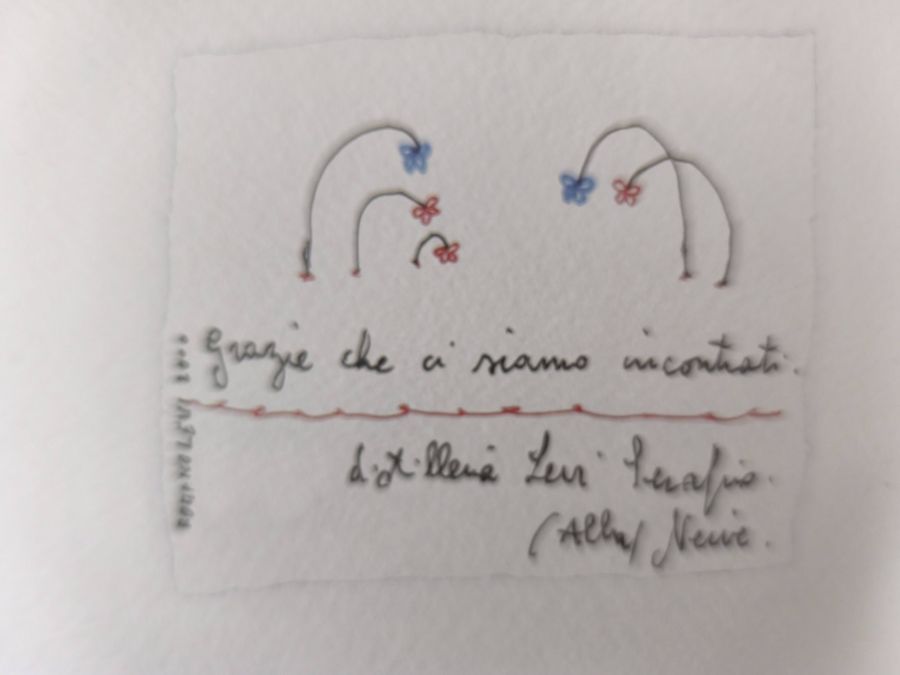 Grazie che ci siamo incontrati.
distilleria Levi Serafino.
(Alba) Neive.